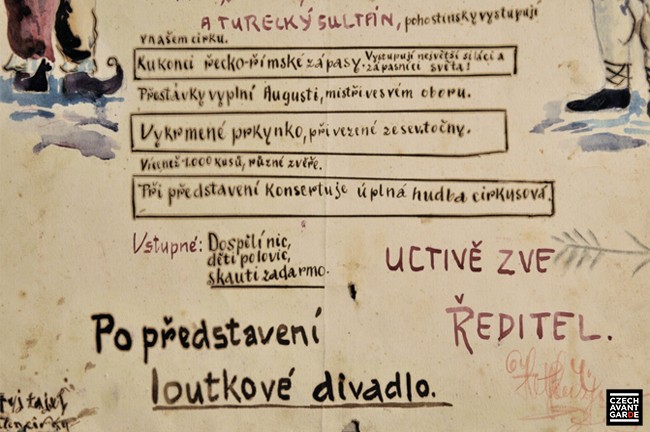 A TURECKÝ SULTÁN, pohostinsky vystupují
v našem cirku.
Ku konci řecko-římské zápasy. Vystupují největší siláci a
zápasníci světa!
Přestávky vyplní Augusti, mistři ve svém oboru.
Vykrmené prkynko, přivezené ze sev. točny.
Více než 1.000 kusů, různé zvěře.
Při představení Konsertuje úplná hudba cirkusová.
Vstupné: Dospělí nic,
děti polovic,
skauti zadarmo.
UCTIVĚ ZVE
ŘEDITEL.
Po představení
loutkové divadlo.
CZECH
AVANT
GARDE